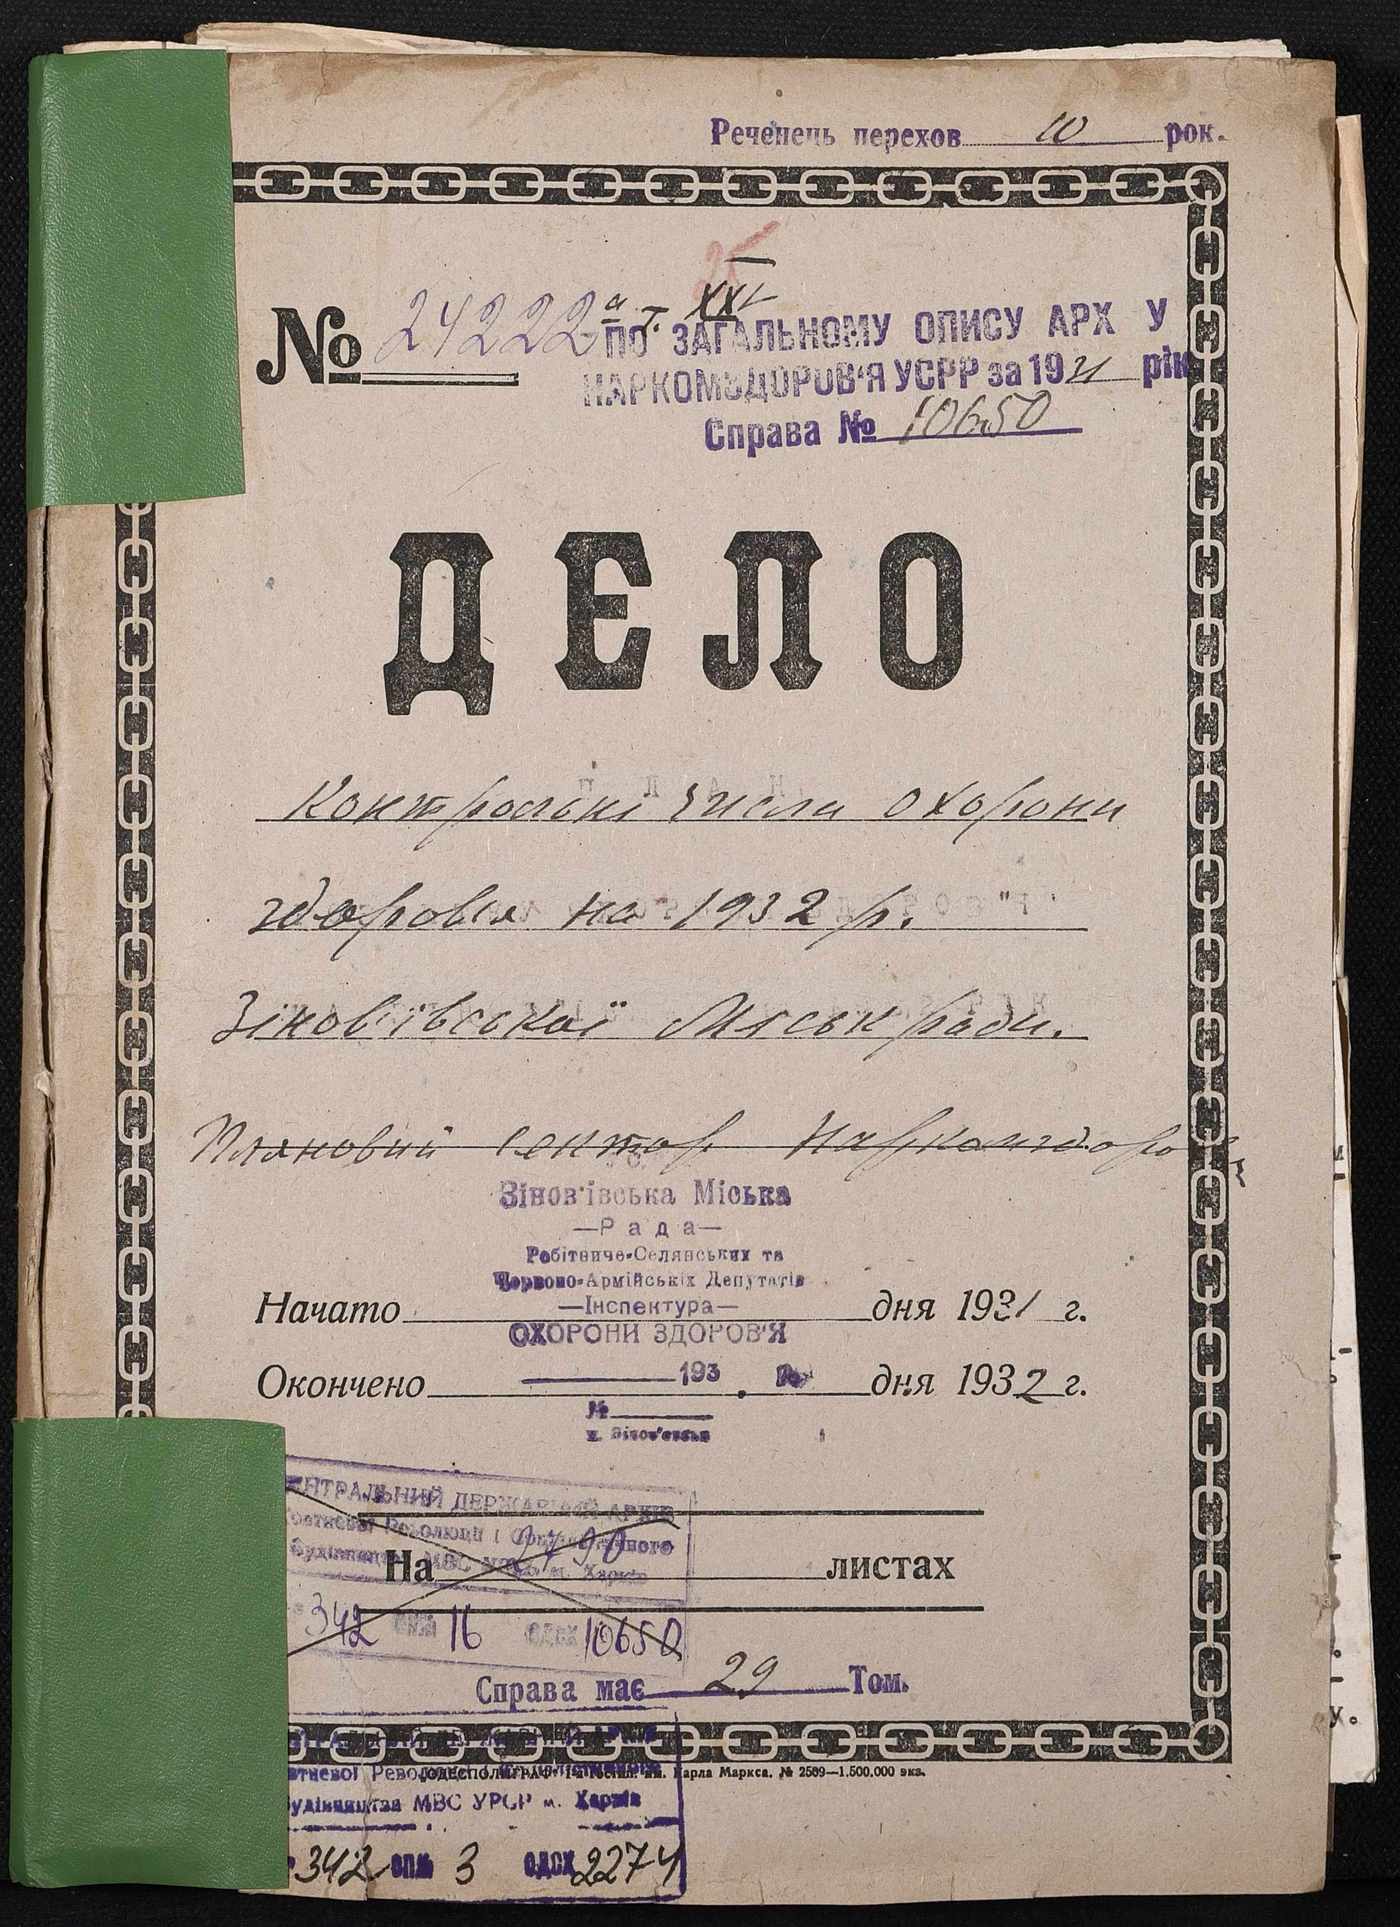 Реченець перехов 10 рок.
25
№ 24222а т. XXV
ПО ЗАГАЛЬНОМУ ОПИСУ АРХ У
НАРКОМЗДОРОВ'Я УСРР за 1931 рік
Справа № 10650
ДЕЛО
Контрольні числа охорони
здоровія на 1932 р.
Зіновіївської Міськради.
Плановий сектор Наркомздоров
Зінов'ївська Міська
—Рада—
Робітниче-Селянських та
Червоно-Армійськіх Депутатів
—Інспектура—
Начато дня 1931 г.
ОХОРОНИ ЗДОРОВ'Я
193
Окончено дня 1932 г.
№
м. Зінов'євськ
ЕНТРАЛЬНИЙ ДЕРЖАВНИЙ АРХІВ
овтневої Революції і Соціалістичного
будівництва МВС УРСР м. Харків
На листах
342 опис 16 одсх 10650
Справа має 29 Том.
ЦЕНТРАЛЬНИЙ ДЕРЖАВНИЙ АРХІВ
овтневої Революції і Соціалістичного
ОДЕСПОЛИГРАФ 1-я Гостип. им. Карла Маркса. № 2589—1.500.000 экз.
удівництва МВС УРСР м. Харків
342 опис 3 одсх 2274